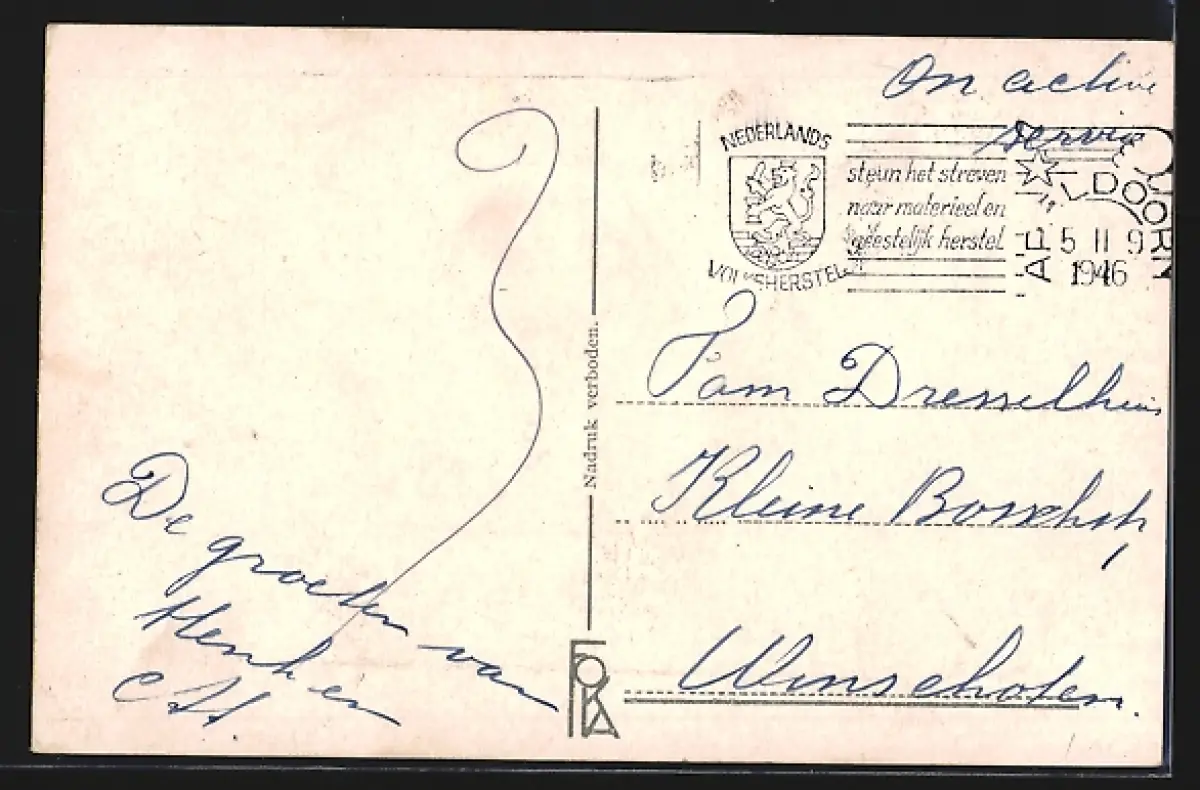 On active
service
NEDERLANDS
VOLKSHERSTEL
steun het streven
naar materieel en
geestelijk herstel
LDOORN
5 II 9
1946
Fam Dresselhuis
Kleine
Winschoten.
De groeten van
Henk en
Nadruk verboden.
FOKA